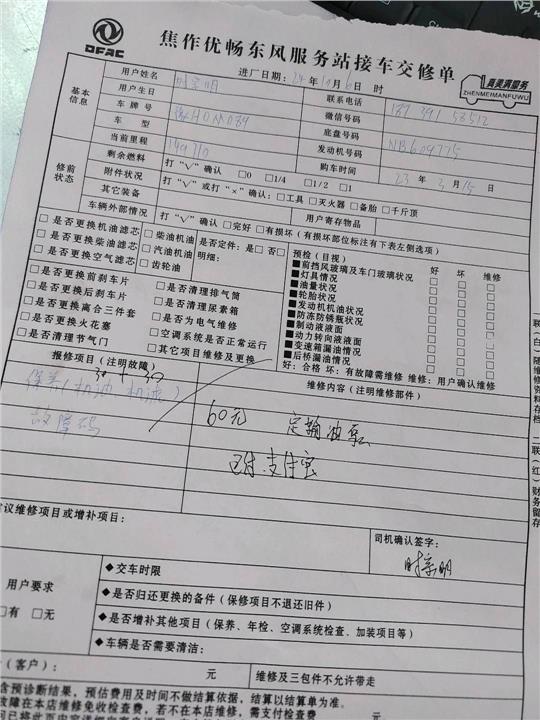 DFAC
焦作优畅东风服务站接车交修单
真美满服务
ZHENMEIMANFUWU
进厂日期：24年10月6日 时
基本信息
用户姓名
用户生日
车牌号
车型
联系电话
微信号码
底盘号码
发动机号码 NB609775
购车时间 23年3月15日
修前状态
当前里程
剩余燃料 打“√”确认 □0 □1/4 □1/2 □1
附件状况 打“√”或打“×”确认：□工具 □灭火器 □备胎 □千斤顶
其它装备 用户寄存物品
车辆外部情况 打“√”确认 □完好 □有损坏（有损坏部位标注有下表左侧选项）
□是否更换机油滤芯
□是否更换柴油滤芯
□是否更换空气滤芯
□柴油机油
□汽油机油
□齿轮油
是否定件：是□ 否□
明细：
□是否更换前刹车片
□是否更换后刹车片
□是否更换离合三件套
□是否更换火花塞
□是否清理节气门
□是否清理排气筒
□是否清理尿素箱
□是否为电气维修
□空调系统是否正常运行
□其它项目维修及更换
预检（目视） 好 坏 维修
■前挡风玻璃及车门玻璃状况 □ □ □
■灯具情况 □ □ □
■油量状况 □ □ □
■轮胎状况 □ □ □
■发动机机油情况 □ □ □
■防冻防锈瓶状况 □ □ □
■制动液液面 □ □ □
■动力转向液液面 □ □ □
■变速箱漏油情况 □ □ □
■后桥漏油情况 □ □ □
好：合格 坏：有故障需维修 维修：用户确认维修
报修项目（注明故障）
维修内容（注明维修部件）
保养（机油 机滤）
故障码
60元 定输油泵
已付.支付宝
建议维修项目或增补项目：
司机确认签字：
用户要求
□有 □无
◆交车时限
◆是否归还更换的备件（保修项目不退还旧件）
◆是否增补其他项目（保养、年检、空调系统检查、加装项目等）
◆车辆是否需要清洁：
（客户）： 元 维修及三包件不允许带走
含预诊断结果，预估费用及时间不做结算依据，结算以结算单为准。
故障在本店维修免收检查费，若不在本店维修，需支付检查费